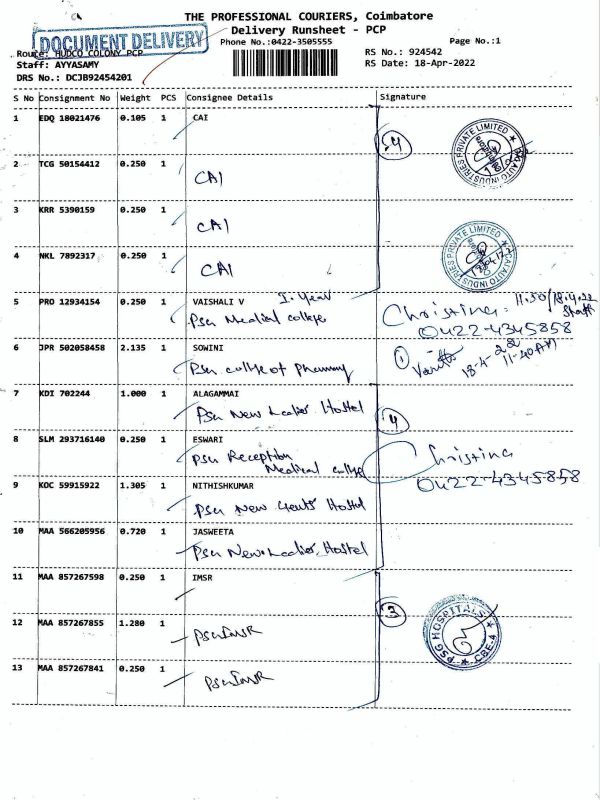 THE PROFESSIONAL COURIERS, Coimbatore
Delivery Runsheet - PCP
DOCUMENT DELIVERY
Phone No.:0422-3505555
Page No.:1
Route: HUDCO COLONY PCP
RS No.: 924542
Staff: AYYASAMY
RS Date: 18-Apr-2022
DRS No.: DCJB92454201
S No Consignment No Weight PCS Consignee Details Signature
1 EDQ 18021476 0.105 1 CAI
4
CAI AUTO INDUSTRIES PRIVATE LIMITED
2 TCG 50154412 0.250 1
CAI
3 KRR 5390159 0.250 1
CAI
CAI AUTO INDUSTRIES PRIVATE LIMITED
4 NKL 7892317 0.250 1
CAI
5 PRO 12934154 0.250 1 VAISHALI V I-Year
PSG Medical college
Christina 11.50/18.4.22
Staff
0422-4345858
6 JPR 502058458 2.135 1 SOWINI
PSG college of pharmacy
1
18-4-22
11-40AM
7 KDI 702244 1.000 1 ALAGAMMAI
PSG New Ladies Hostel
4
8 SLM 293716140 0.250 1 ESWARI
PSG Reception
Medical college
Christina
0422-4345858
9 KOC 59915922 1.305 1 NITHISHKUMAR
PSG New Gents Hostel
10 MAA 566205956 0.720 1 JASWEETA
PSG New Ladies Hostel
11 MAA 857267598 0.250 1 IMSR
3
PSG HOSPITALS
CBE-4
12 MAA 857267855 1.280 1
PSGIMSR
13 MAA 857267841 0.250 1
PSGIMSR